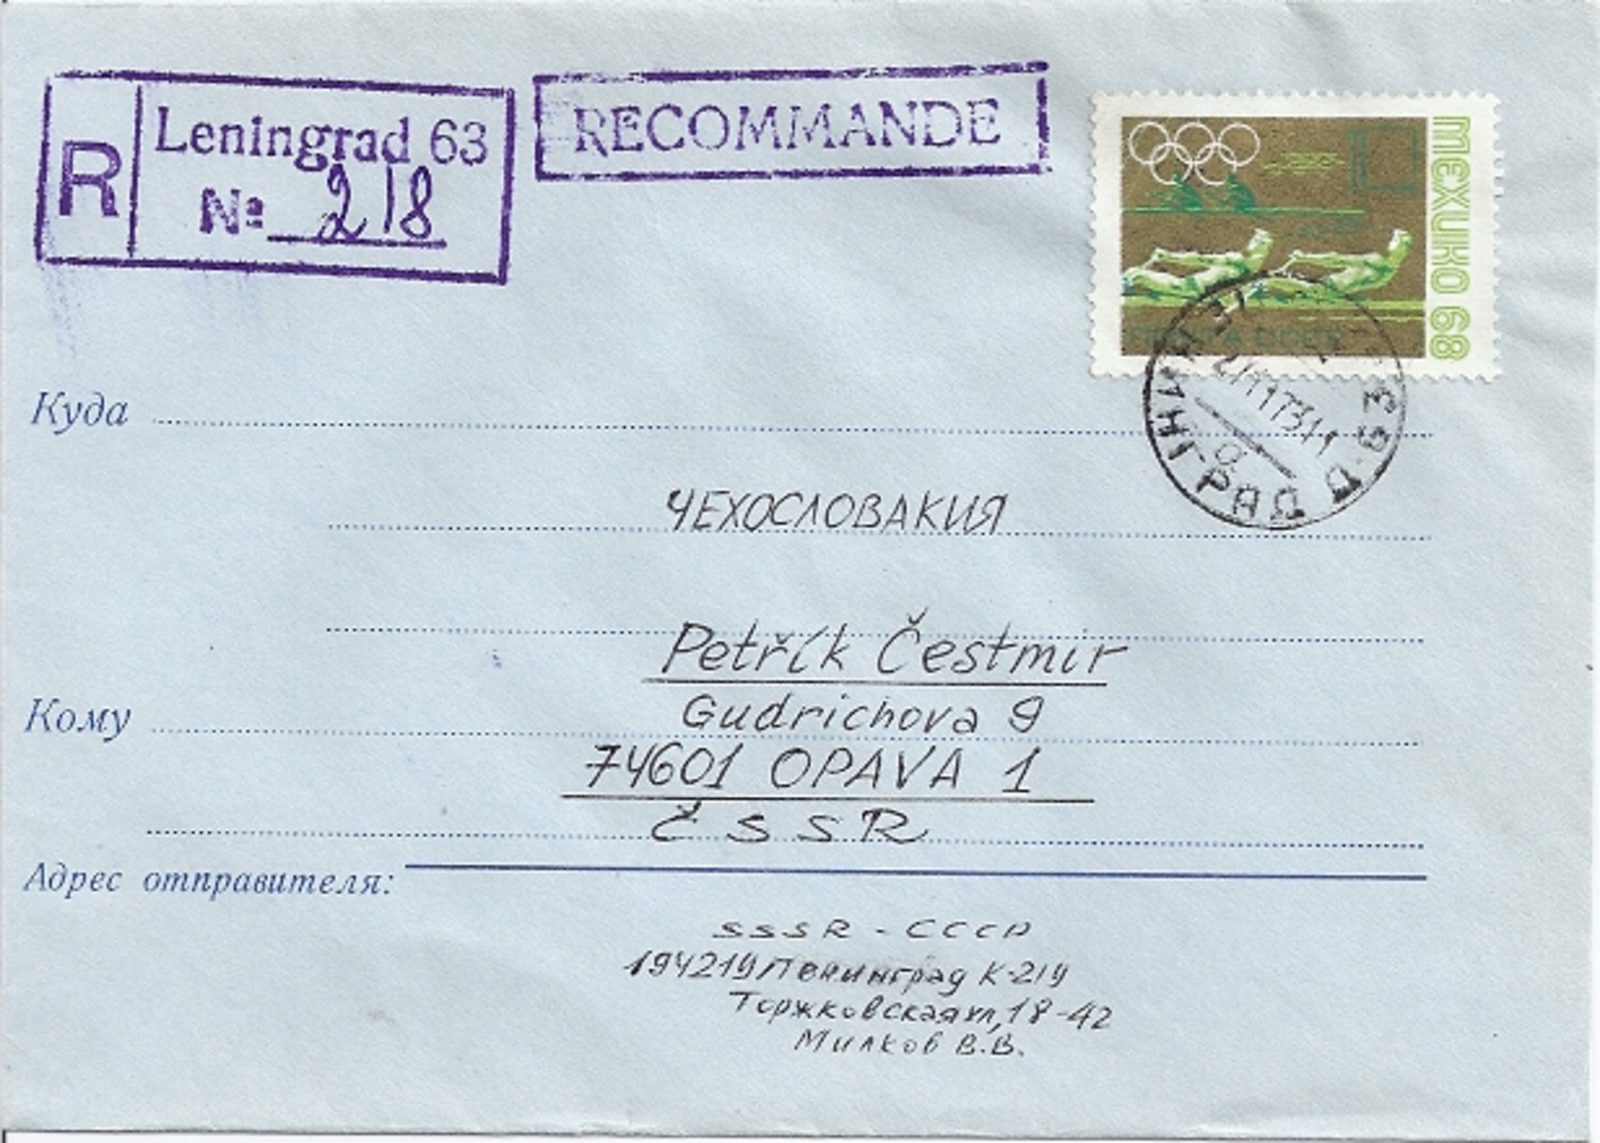 R Leningrad 63
№ 218
RECOMMANDE
МЕХИКО 68
10
ПОЧТА СССР
Куда
ЧЕХОСЛОВАКИЯ
Petřík Čestmír
Кому
Gudrichova 9
74601 OPAVA 1
ČSSR
Адрес отправителя:
SSSR - СССР
194219 Ленинград К-219
Торжковская ул, 18-42
Милков В.В.